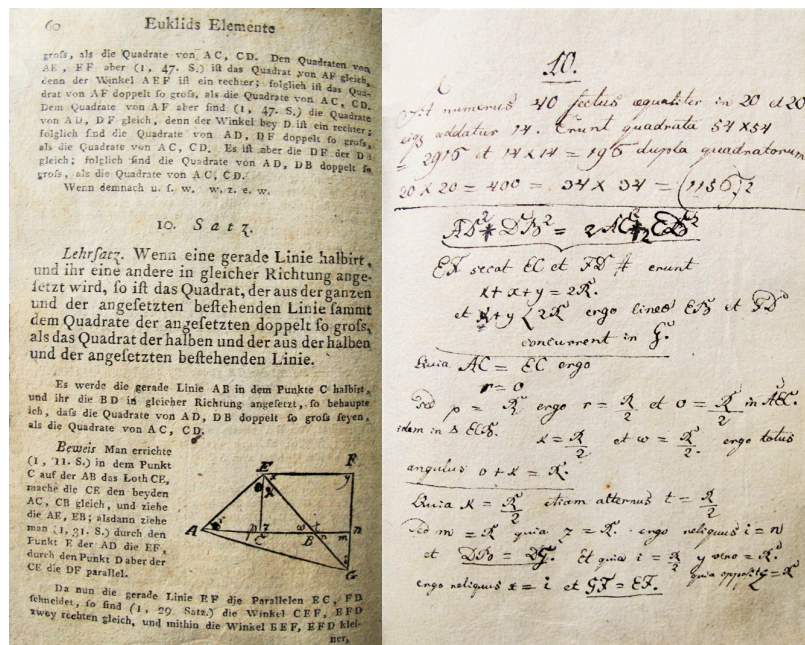 60 Euklids Elemente
groſs, als die Quadrate von AC, CD. Den Quadraten von
AE, EF aber (1, 47. S.) iſt das Quadrat von AF gleich,
denn der Winkel AEF iſt ein rechter; folglich iſt das Qua-
drat von AF doppelt ſo groſs, als die Quadrate von AC, CD.
Dem Quadrate von AF aber ſind (1, 47. S.) die Quadrate
von AD, DF gleich, denn der Winkel bey D iſt ein rechter;
folglich ſind die Quadrate von AD, DF doppelt ſo groſs,
als die Quadrate von AC, CD. Es iſt aber die DF der DB
gleich; folglich ſind die Quadrate von AD, DB doppelt ſo
groſs, als die Quadrate von AC, CD.
Wenn demnach u. ſ. w. w. z. e. w.
10. Satz.
Lehrſatz. Wenn eine gerade Linie halbirt,
und ihr eine andere in gleicher Richtung ange-
ſetzt wird, ſo iſt das Quadrat, der aus der ganzen
und der angeſetzten beſtehenden Linie ſammt
dem Quadrate der angeſetzten doppelt ſo groſs,
als das Quadrat der halben und der aus der halben
und der angeſetzten beſtehenden Linie.
Es werde die gerade Linie AB in dem Punkte C halbirt,
und ihr die BD in gleicher Richtung angeſetzt, ſo behaupte
ich, daſs die Quadrate von AD, DB doppelt ſo groſs ſeyen,
als die Quadrate von AC, CD.
Beweis Man errichte
(1, 11. S.) in dem Punkt
C auf der AB das Loth CE,
mache die CE den beyden
AC, CB gleich, und ziehe
die AE, EB; alsdann ziehe
man (1, 31. S.) durch den
Punkt E der AD die EF,
durch den Punkt D aber der
CE die DF parallel.
E F
x y
A C B n
p z w m
G
Da nun die gerade Linie EF die Parallelen EC, FD
ſchneidet, ſo ſind (1, 29. Satz.) die Winkel CEF, EFD
zwey rechten gleich, und mithin die Winkel BEF, EFD klei-
ner,
10.
numerus 40 sectus equaliter in 20 et 20
addatur 14. Erunt quadrata 54 x 54
= 2916 et 14 x 14 = 196 dupla quadratorum
20 x 20 = 400 = 34 x 34 = (1156)2
AD² + DB² = 2AC²
EF secat EC et FD erunt
x + x + y = 2R.
et x + y < 2R ergo lineæ EB et FD
concurrent in G.
Quia AC = EC ergo
r = o
Sed p = R ergo r = R/2 et o = R/2 in AEC.
idem in Δ ECB. x = R/2 et w = R/2. ergo totus
angulus o + x = R.
Quia x = R/2 etiam alternus t = R/2
Sed m = R quia z = R. ergo reliquus i = n
et DB = DG. Et quia i = R/2 y vero = R.
quia opposit z = R
ergo reliquus x = i et GF = EF.